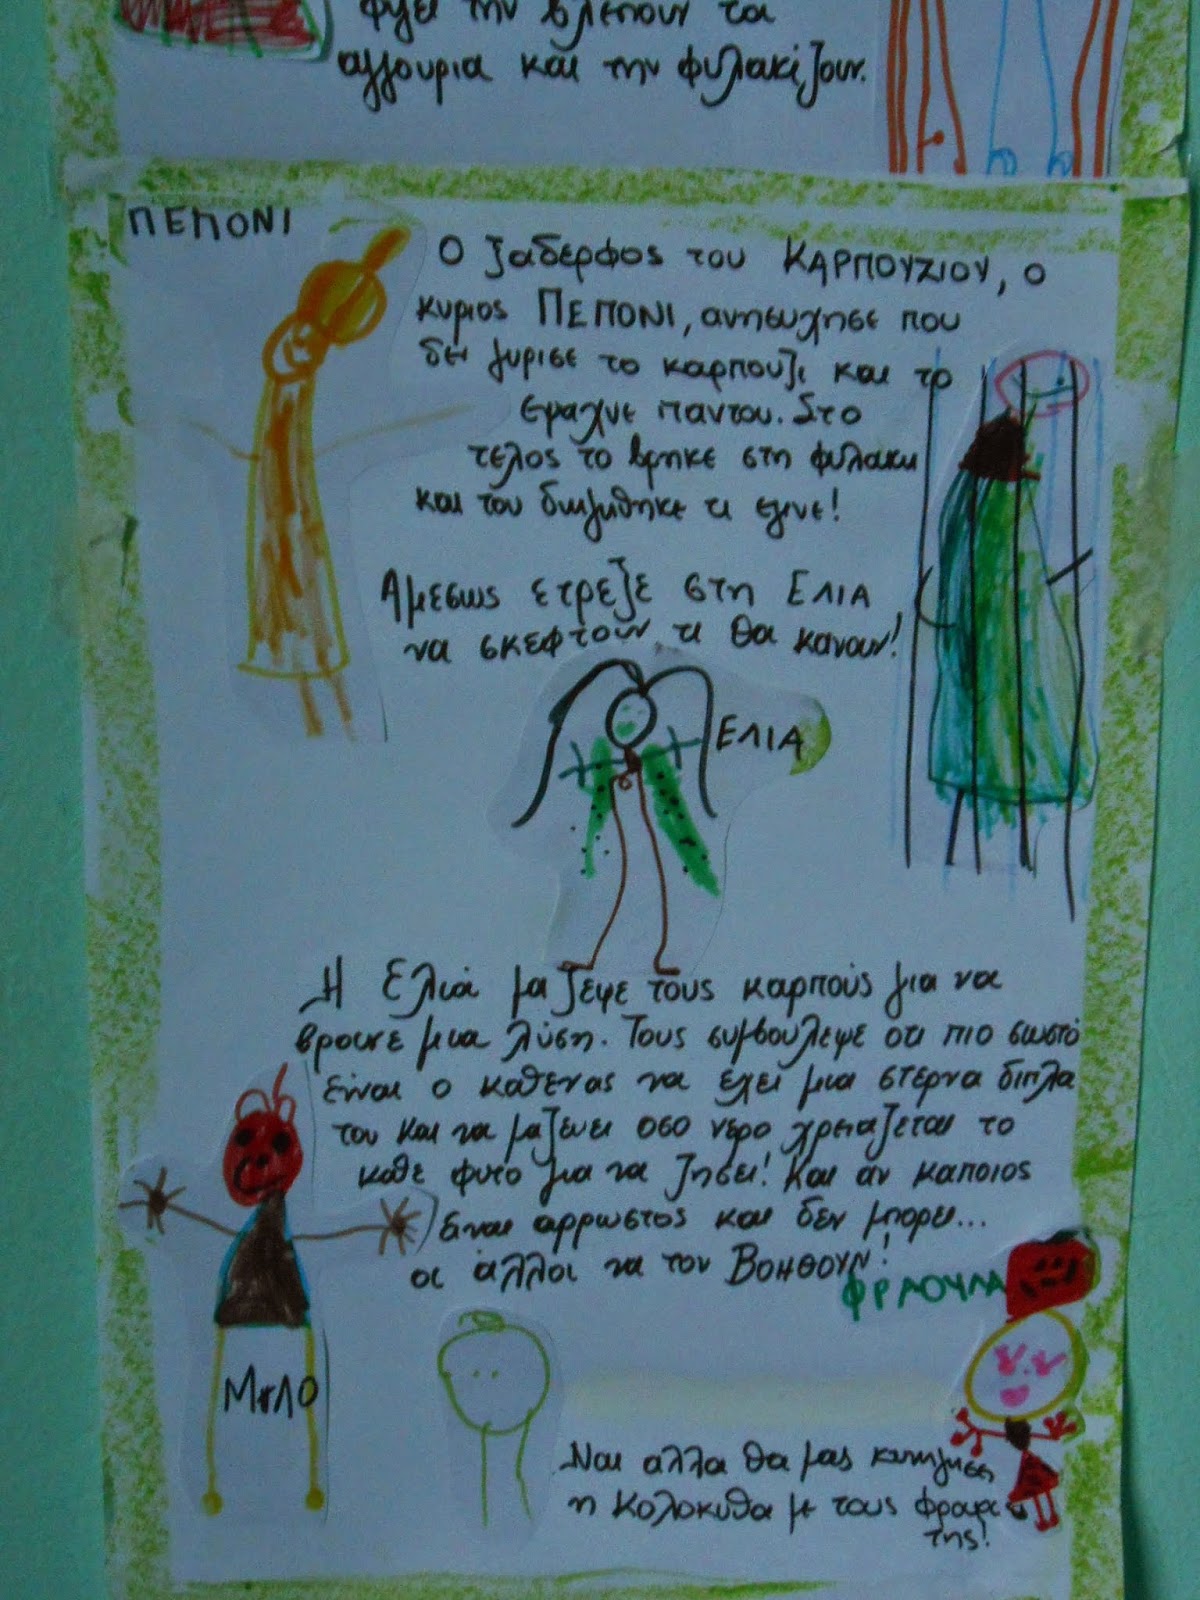 φυγει την βλεπουν τα
αγγουρια και την φυλακιζουν.
ΠΕΠΟΝΙ
Ο ξαδερφος του ΚΑΡΠΟΥΖΙΟΥ, ο
κυριος ΠΕΠΟΝΙ, ανησυχησε που
δεν γυρισε το καρπουζι και το
εψαχνε παντου. Στο
τελος το βρηκε στη φυλακη
και του διηγηθηκε τι εγινε!
Αμεσως ετρεξε στη ΕΛΙΑ
να σκεφτουν τι θα κανουν!
ΕΛΙΑ
Η Ελιά μαζεψε τους καρπούς για να
βρουνε μια λύση. Τους συμβουλεψε οτι πιο σωστό
είναι ο καθενας να εχει μια στερνα διπλα
του και να μαζευει οσο νερο χρειαζεται το
καθε φυτο για να ζησει! Και αν καποιος
ειναι αρρωστος και δεν μπορει...
οι άλλοι να τον ΒΟΗΘΟΥΝ!
ΦΡΑΟΥΛΑ
ΜηΛΟ
Ναι αλλα θα μας κυνηγησει
η Κολοκυθα με τους
της!